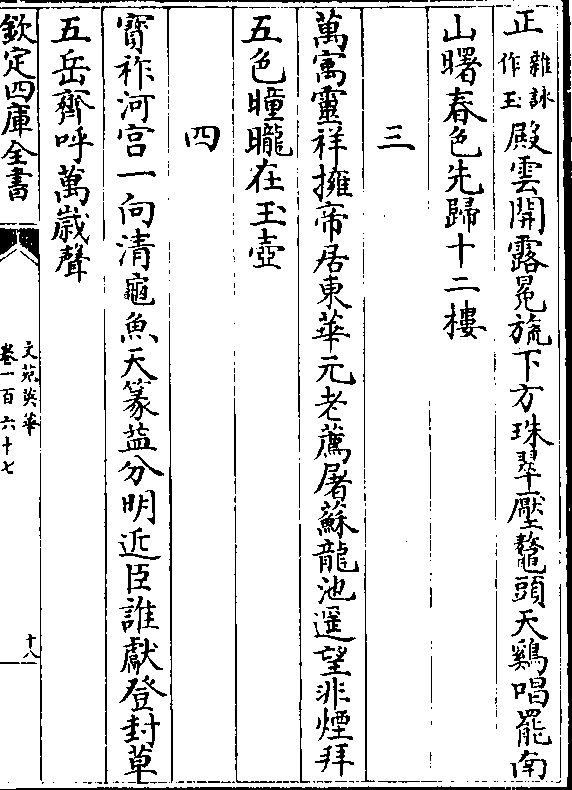 正雜詠作玉殿雲開露冕旒下方珠翠壓鼇頭天鷄唱罷南
山曙春色先歸十二樓
三
萬㝢靈祥擁帝居東華元老薦屠蘇龍池遥望非煙拜
五色曈曨在玉壺
四
寳祚河宫一向清龜魚天篆益分明近臣誰獻登封草
五岳齊呼萬歳聲
欽定四庫全書
文苑英華
卷一百六十七
十八